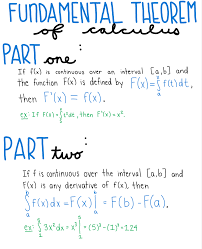 FUNDAMENTAL THEOREM
of calculus
PART one:
If f(x) is continuous over an interval [a,b] and
the function F(x) is defined by F(x)=∫ₐˣ f(t)dt,
then F'(x) = f(x).
ex: If F(x)=∫ t²dt, then F'(x)=x².
PART two:
If f is continuous over the interval [a,b] and
F(x) is any derivative of f(x), then
∫ₐᵇ f(x)dx = F(x)|ₐᵇ = F(b) - F(a).
ex: ∫₁⁵ 3x²dx = x³|₁⁵ = (5)³-(1)³=124